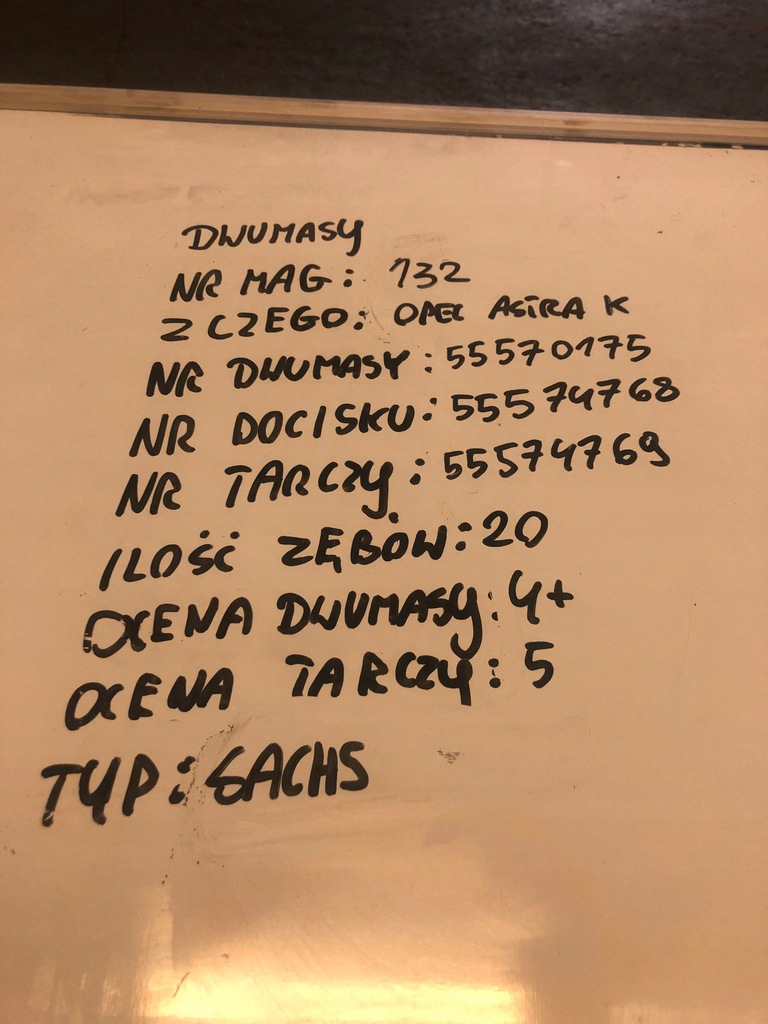 DWUMASY
NR MAG: 132
Z CZEGO: OPEL ASTRA K
NR DWUMASY: 55570175
NR DOCISKU: 55574768
NR TARCZY: 55574769
ILOŚĆ ZĘBÓW: 20
OCENA DWUMASY: 4+
OCENA TARCZY: 5
TYP: SACHS